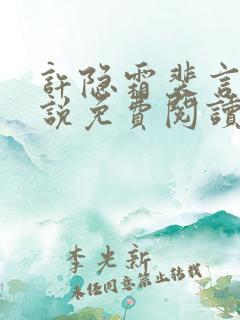 許隐霜裴言
説免費閱讀
李光新
未经同意禁止转载